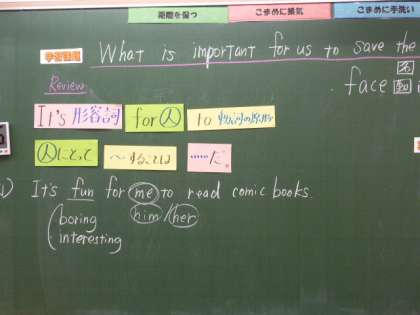 距離を保つ こまめに換気 こまめに手洗い
学習課題 What is important for us to save the
Review face
It's 形容詞 for 人 to 動詞の原形
人にとって ～することは ……だ。
1) It's fun for me to read comic books.
boring him/her
interesting